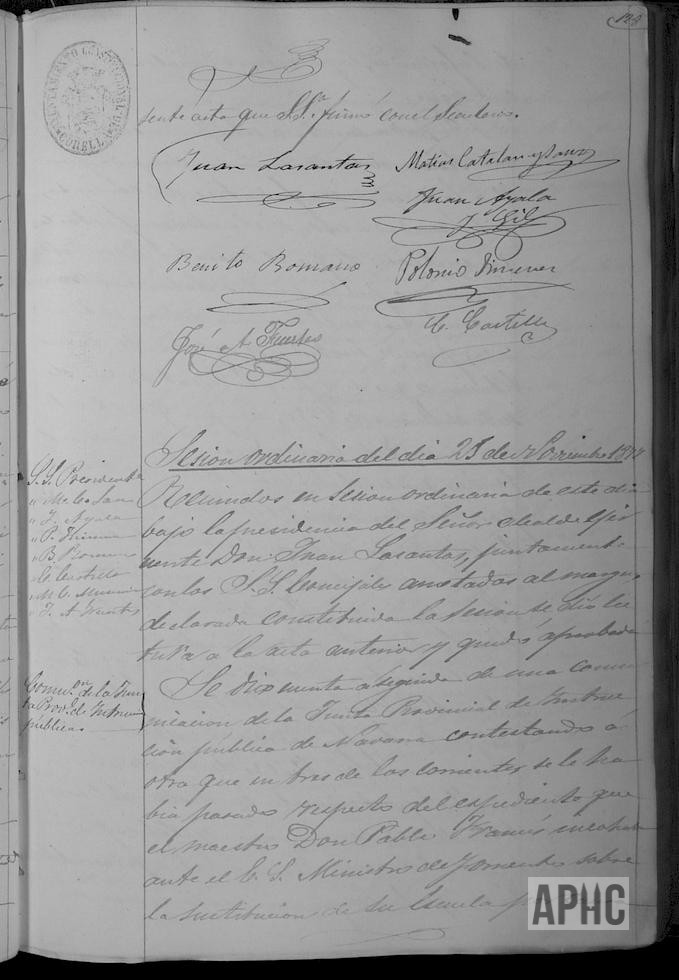 AYUNTAMIENTO CONSTITUCIONAL DE CORELLA
sente acta que S.Sª firmó con el Secretario.
Juan Lasantas
Matias Catalan y Sanz
Juan Ayala
y Gil
Benito Romano
Polonio Jimenez
José A Fuertes
C. Castillo
Sesion ordinaria del dia 25 de Noviembre
S.S. Presidente
" J. Ayala
" P. Jimene
" B. Romano
" C. Castillo
" J. A Fuertes
Reunidos en sesion ordinaria de este dia
bajo la presidencia del Señor Alcalde ejer
Don Juan Lasantas, juntament.
con los S.S. Concejales anotados al margen,
declarada constituida la sesion se dio lec
tura a la acta anterior y quedó aprobada
Comuon de la Jun
ta Provl de Instruc
publica.
Se dio cuenta a seguida de una comu
nicacion de la Junta Provincial de Instruc
cion publica de Navarra contestando á
otra que en tres de los corrientes se le ha
bia pasado respecto del espediente que
el maestro Don Pablo
ante el E. S. Ministro de Fomento sobre
la sustitucion de su Escuela
APHC